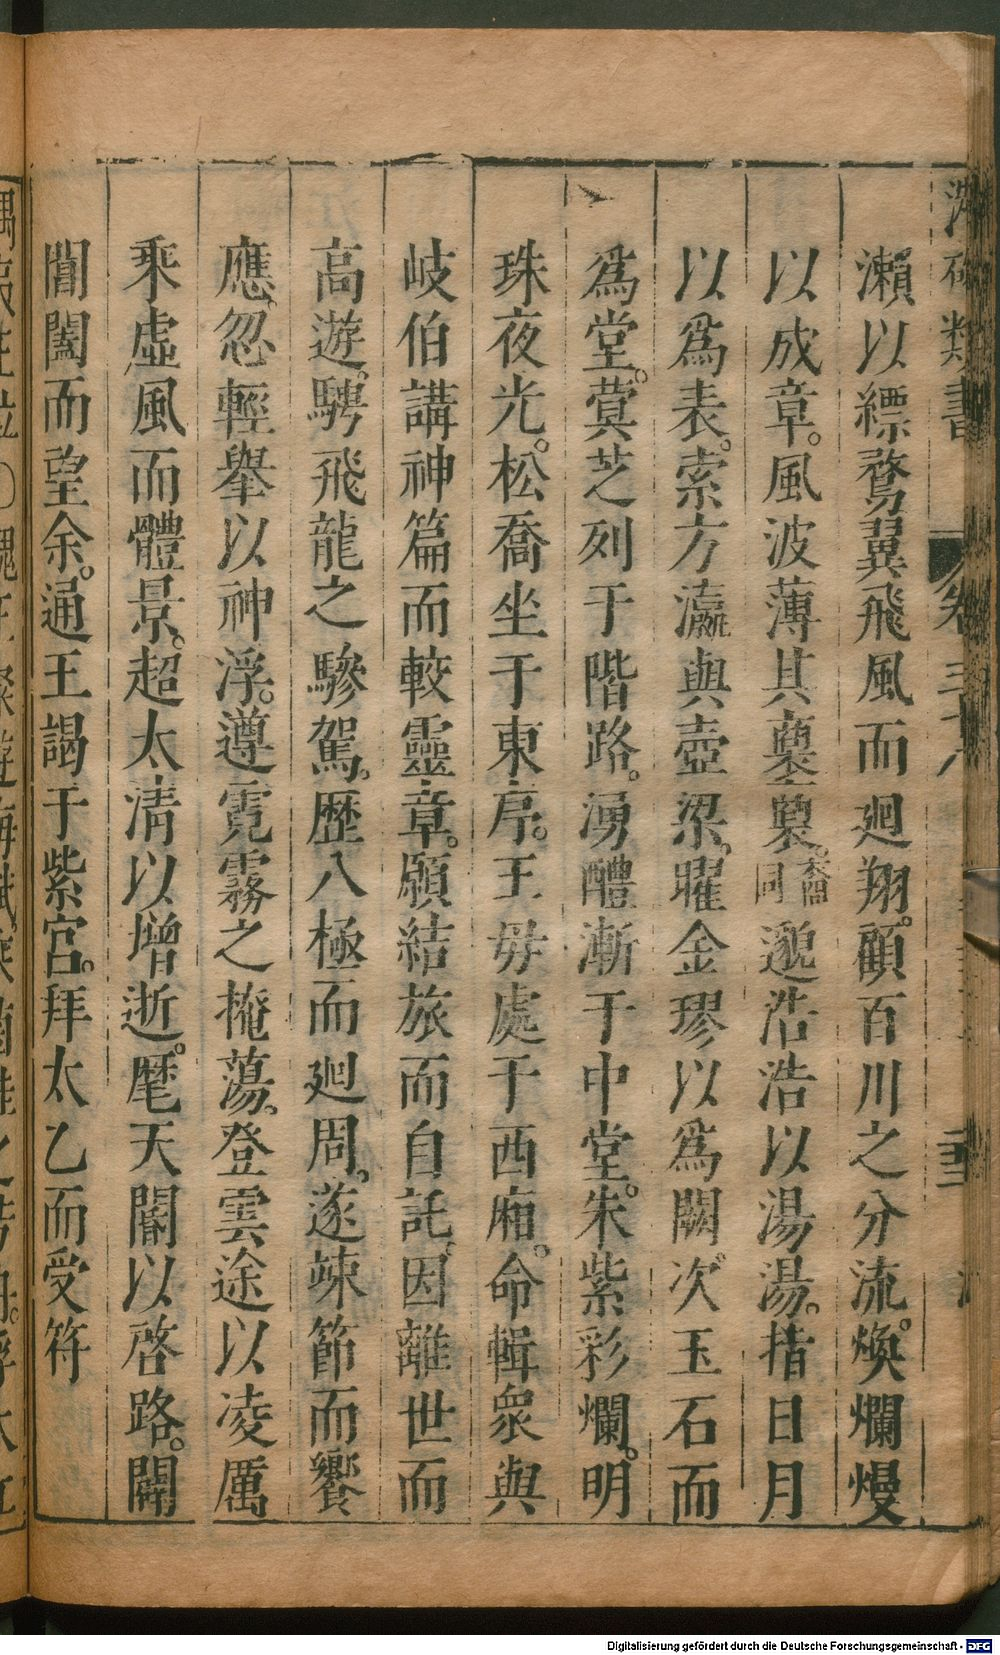 瀬以縹鶩翼飛風而廻翔。顧百川之分流。煥爛熳
以成章。風波薄其裛裛。邈浩浩以湯湯。指日月
以爲表。索方瀛與壺梁。曜金璆以爲闕。次玉石而
爲堂。蓂芝列于階路。湧醴漸于中堂。朱紫彩爛。明
珠夜光。松喬坐于東序。王母處于西廂。命輯衆與
岐伯講神篇而較靈章。願結旅而自託。因離世而
高遊。騁飛龍之驂駕。歷八極而廻周。遂竦節而響
應。忽輕舉以神浮。遵霓霧之掩蕩。登雲途以凌厲
乘虛風而體景。超太清以增逝。麾天閽以啓路。闢
閶闔而望余。通王謁于紫宫。拜太乙而受符
Digitalisierung gefördert durch die Deutsche Forschungsgemeinschaft - DFG